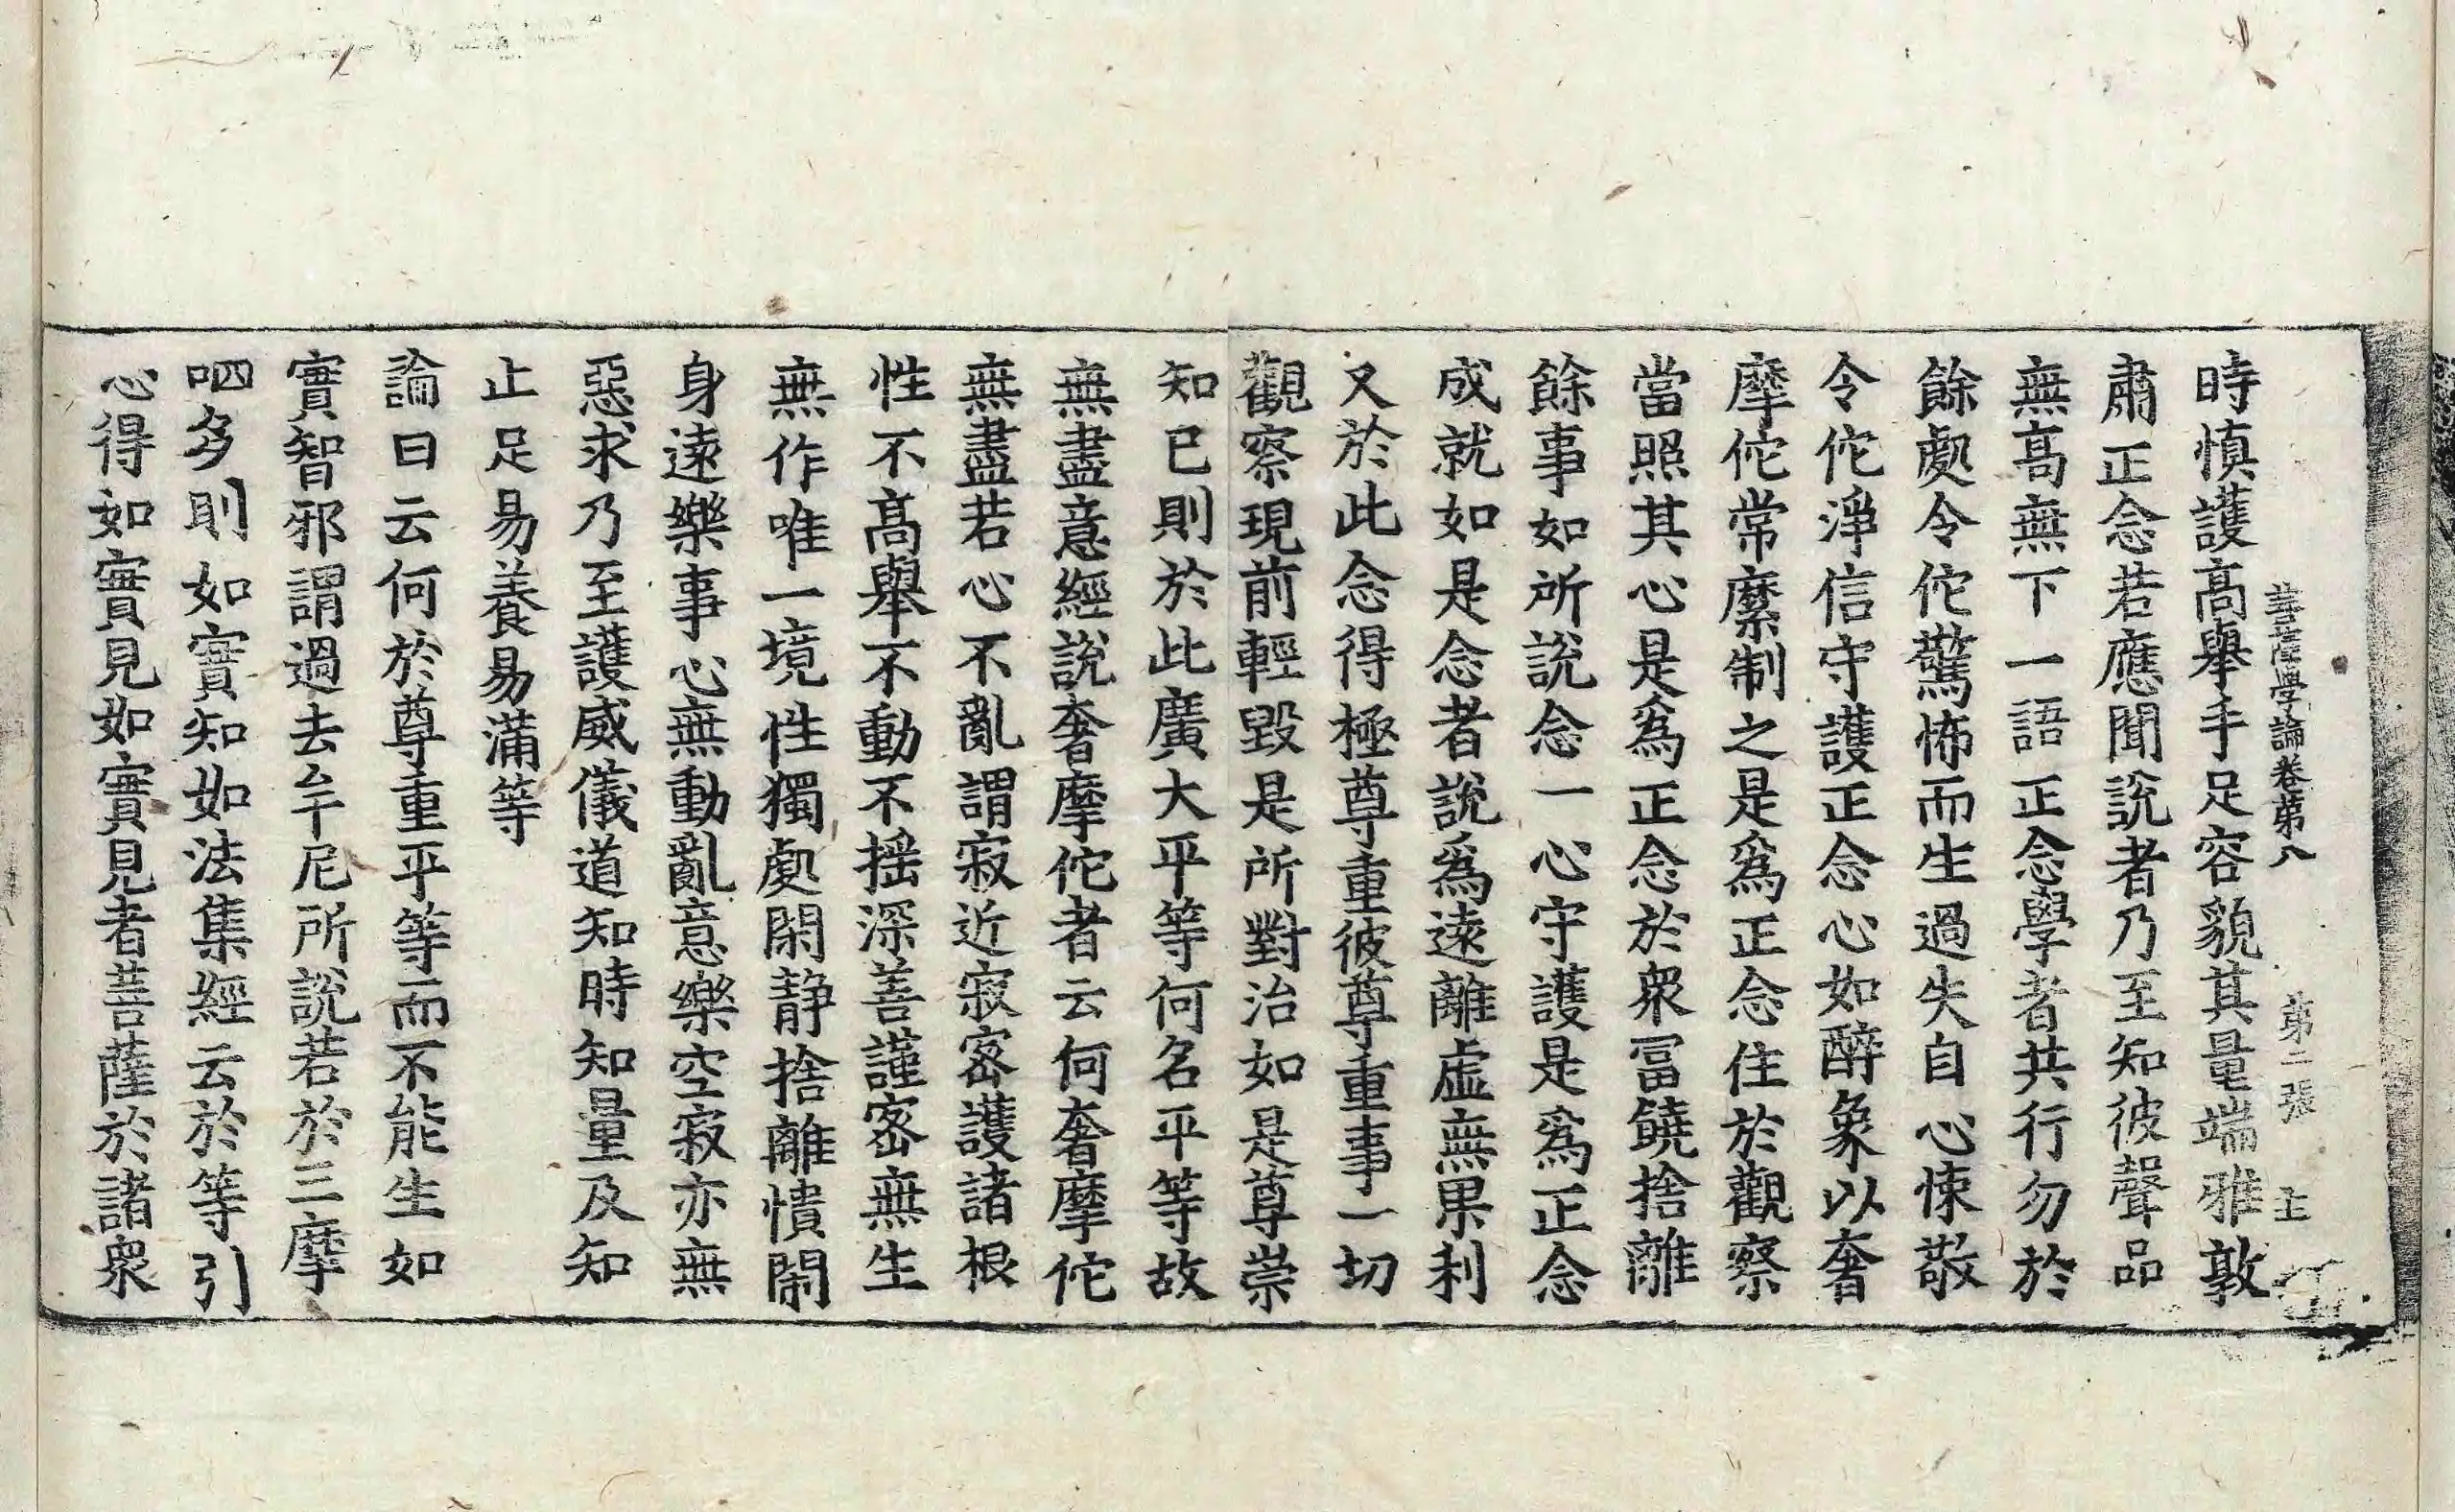 菩薩學論卷第八　第二張　主
時慎護高舉手足容貌其量端雅敦
肅正念若應聞說者乃至知彼聲品
無高無下一語正念學者共行勿於
餘處令佗驚怖而生過失自心悚敬
令佗淨信守護正念心如醉象以奢
摩佗常縻制之是爲正念住於觀察
當照其心是爲正念於衆冨饒捨離
餘事如所說念一心守護是爲正念
成就如是念者說爲遠離虛無果利
又於此念得極尊重彼尊重事一切
觀察現前輕毀是所對治如是尊崇
知已則於此廣大平等何名平等故
無盡意經說奢摩佗者云何奢摩佗
無盡若心不亂謂寂近寂密護諸根
性不高舉不動不摇深善謹密無生
無作唯一境性獨處閑静捨離憒閙
身遠樂事心無動亂意樂空寂亦無
惡求乃至護威儀道知時知量及知
止足易養易滿等
論曰云何於尊重平等而不能生如
實智邪謂過去牟尼所說若於三摩
呬多則如實知如法集經云於等引
心得如實見如實見者菩薩於諸衆